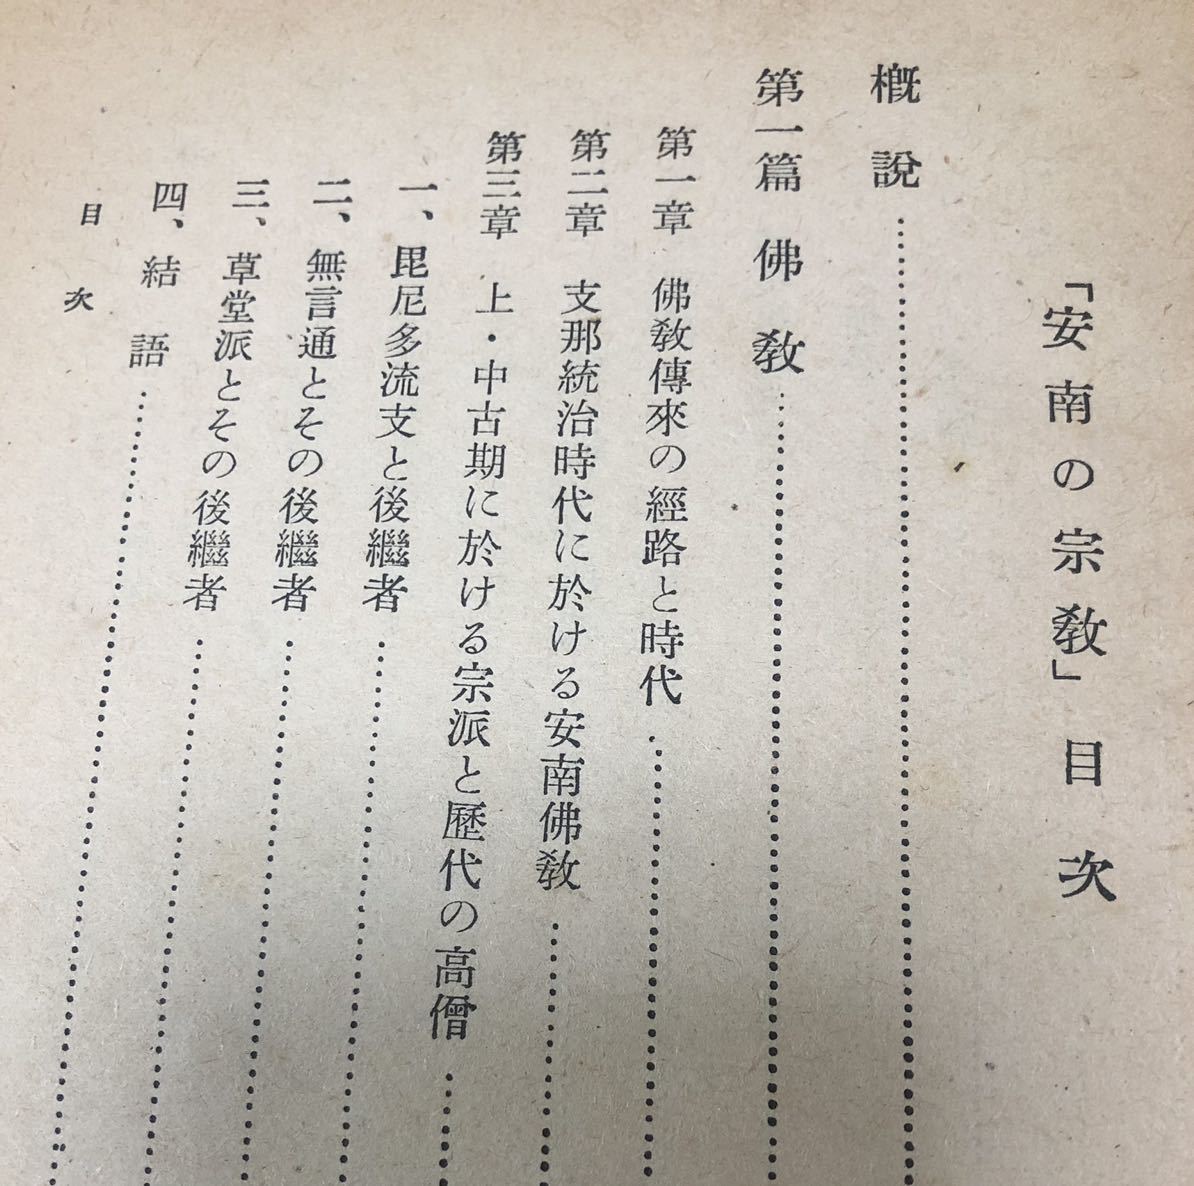 「安南の宗教」目次
概說
第一篇 佛教
第一章 佛教傳來の經路と時代
第二章 支那統治時代に於ける安南佛教
第三章 上・中古期に於ける宗派と歷代の高僧
一、毘尼多流支と後繼者
二、無言通とその後繼者
三、草堂派とその後繼者
四、結語
目次